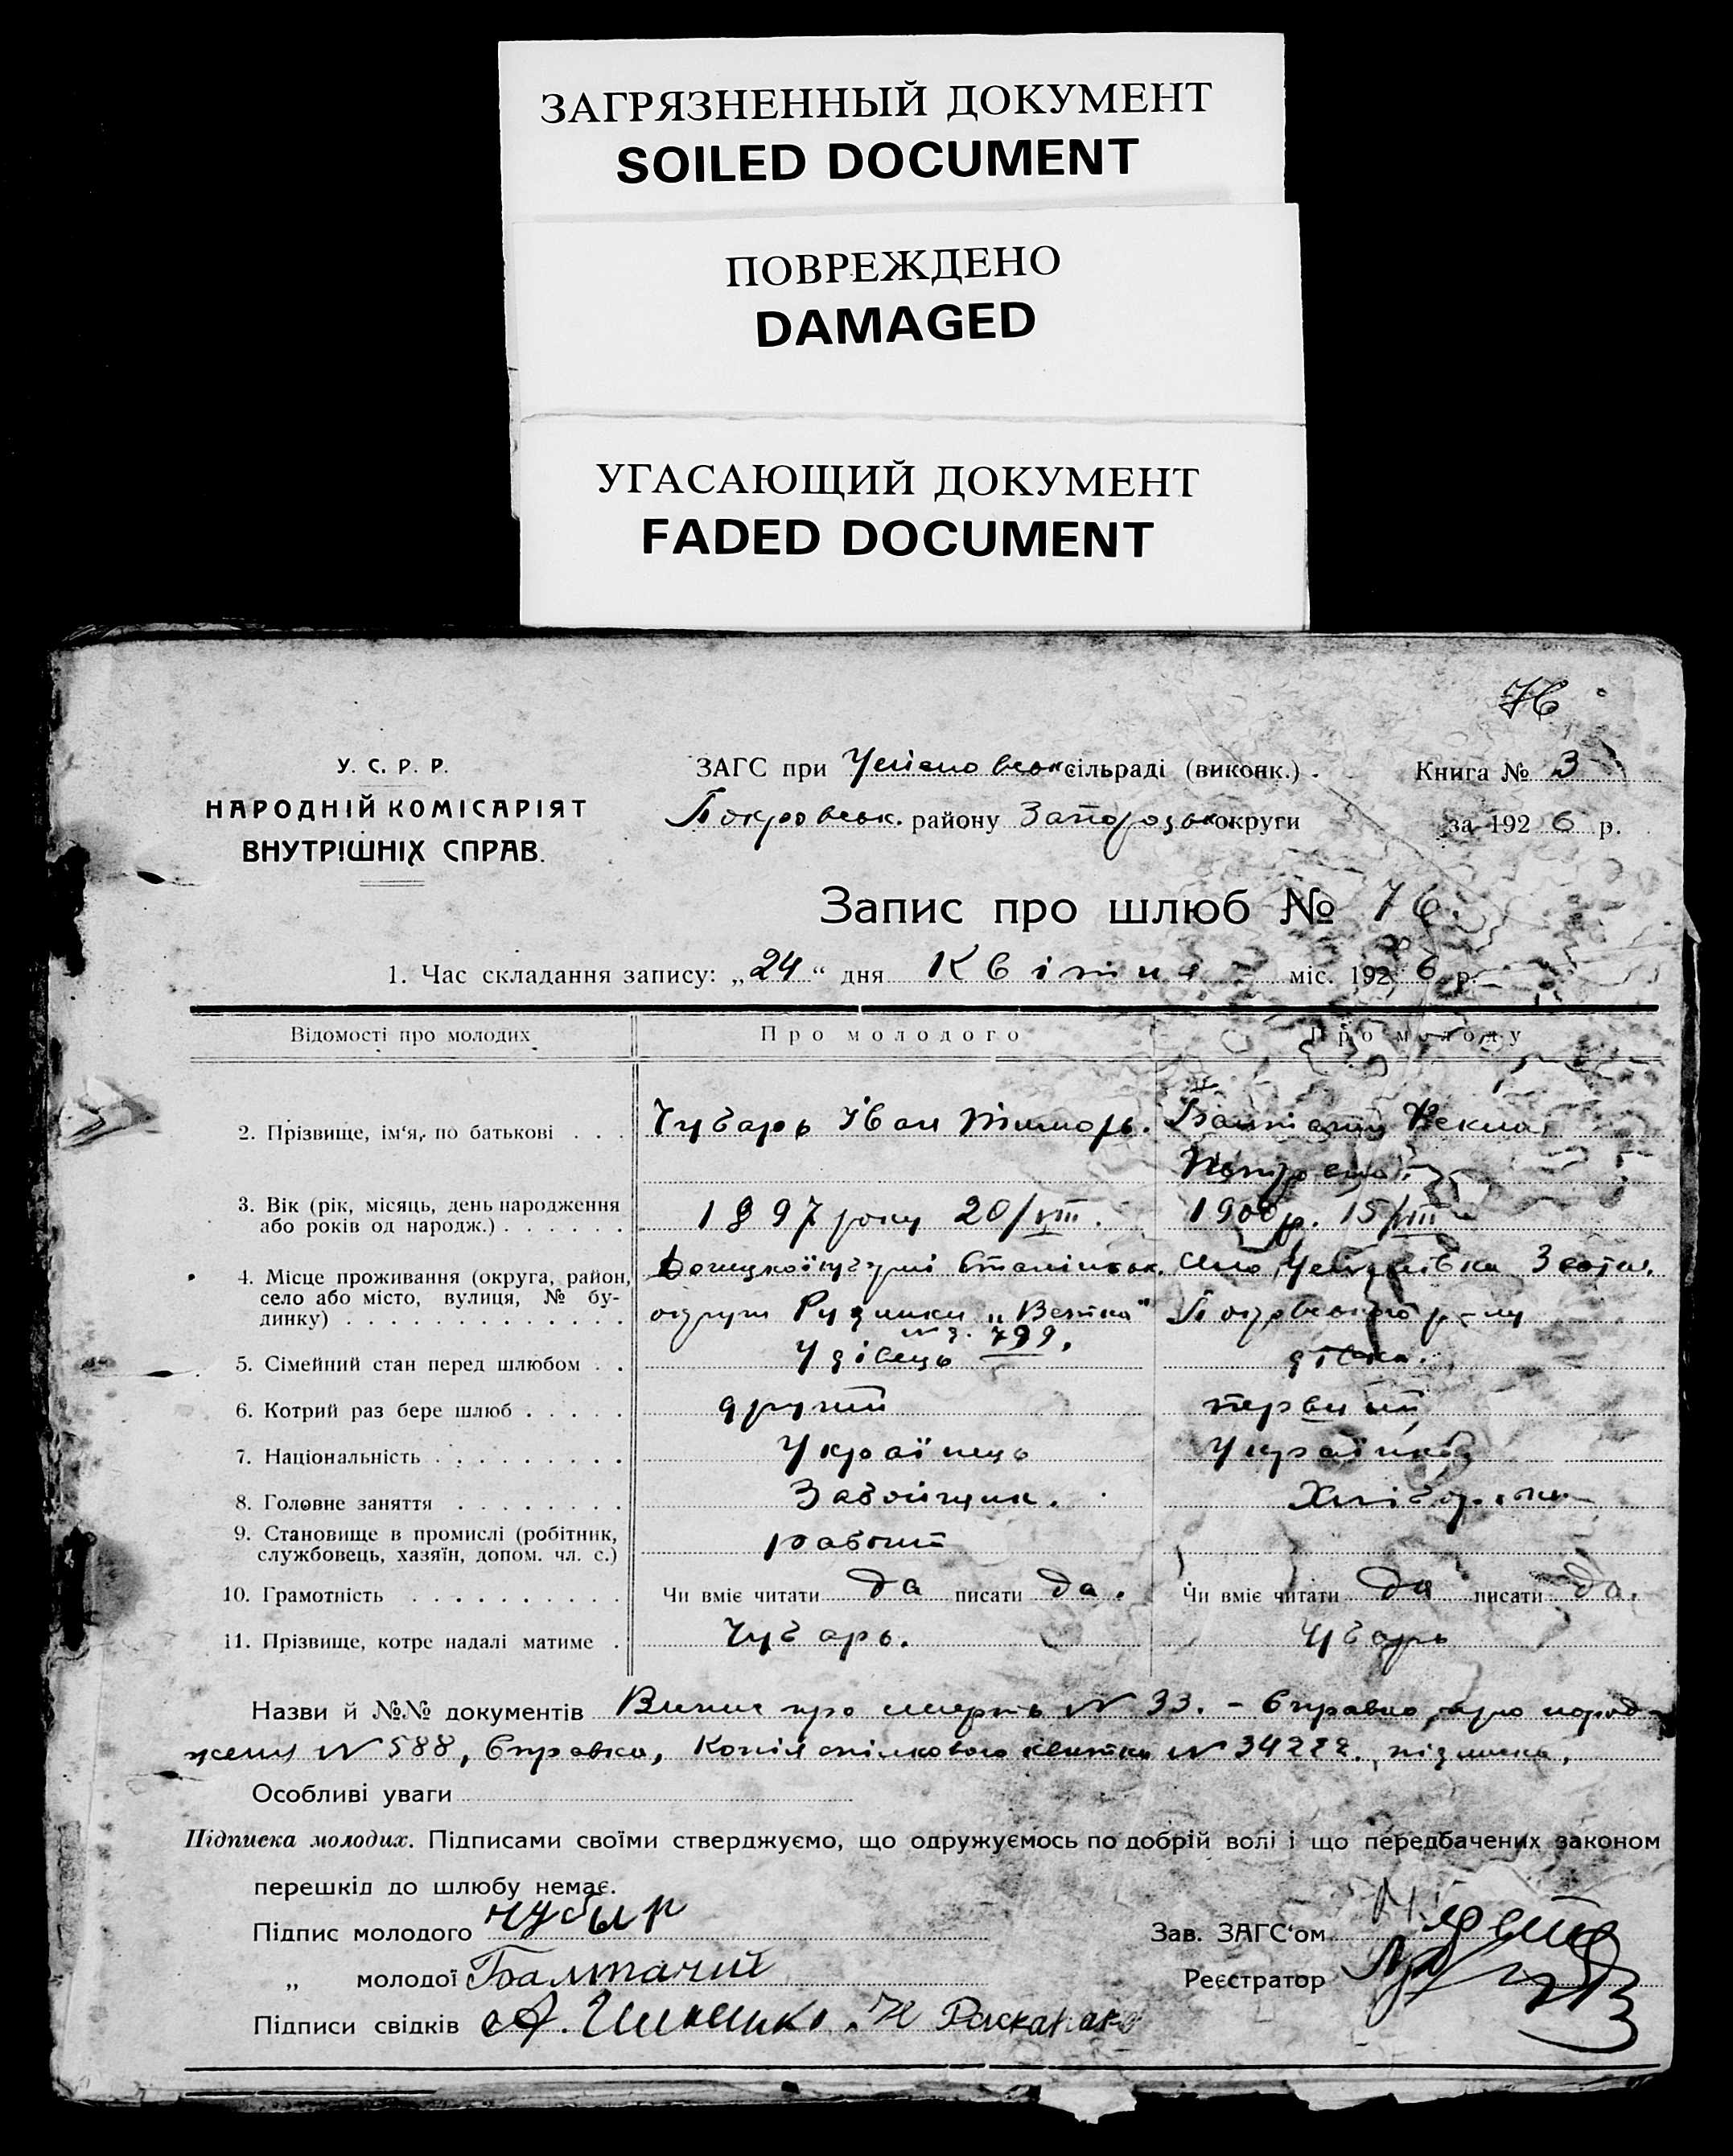 ЗАГРЯЗНЕННЫЙ ДОКУМЕНТ
SOILED DOCUMENT
ПОВРЕЖДЕНО
DAMAGED
УГАСАЮЩИЙ ДОКУМЕНТ
FADED DOCUMENT
76
У. С. Р. Р.
НАРОДНІЙ КОМІСАРІЯТ
ВНУТРІШНІХ СПРАВ.
ЗАГС при Успеновськ сільраді (виконк.)
Покровськ. району Запорозьк округи
Книга № 3
за 1926 р.
Запис про шлюб № 76.
1. Час складання запису: „24“ дня Квітня міс. 1926 р.
Відомості про молодих Про молодого Про молоду
2. Прізвище, ім‘я, по батькові . . . Чубарь Іван Тимофь. Балтачий Текля
Петровна
3. Вік (рік, місяць, день народження
або років од народж.) . . . . . . 1897 року 20/VIII. 1900 р. 15/VIII
4. Місце проживання (округа, район,
село або місто, вулиця, № будинку) . . . . . . . . . . . . . Донецкої губерні Сталінськ. село Успенівка
округи Рудники „Ветка“ Покровського р-ну
№ 799.
5. Сімейний стан перед шлюбом . . Удівець дівка.
6. Котрий раз бере шлюб . . . . . другий первий
7. Національність . . . . . . . . . Українець Українка
8. Головне заняття . . . . . . . . Забойщик.
9. Становище в промислі (робітник,
службовець, хазяїн, допом. чл. с.) рабочий
10. Грамотність . . . . . . . . . . Чи вміє читати да писати да. Чи вміє читати да писати да.
11. Прізвище, котре надалі матиме . Чубарь. Чубарь
Назви й №№ документів Випис про смерть № 33. – Справка про народ-
ження № 588, Справка, Копія спілкового квитка № 34272, підписка,
Особливі уваги
Підписка молодих. Підписами своїми стверджуємо, що одружуємось по добрій волі і що передбачених законом
перешкід до шлюбу немає.
Підпис молодого Чубыр
„ молодої Балтачий
Підписи свідків
Зав. ЗАГС‘ом
Реєстратор